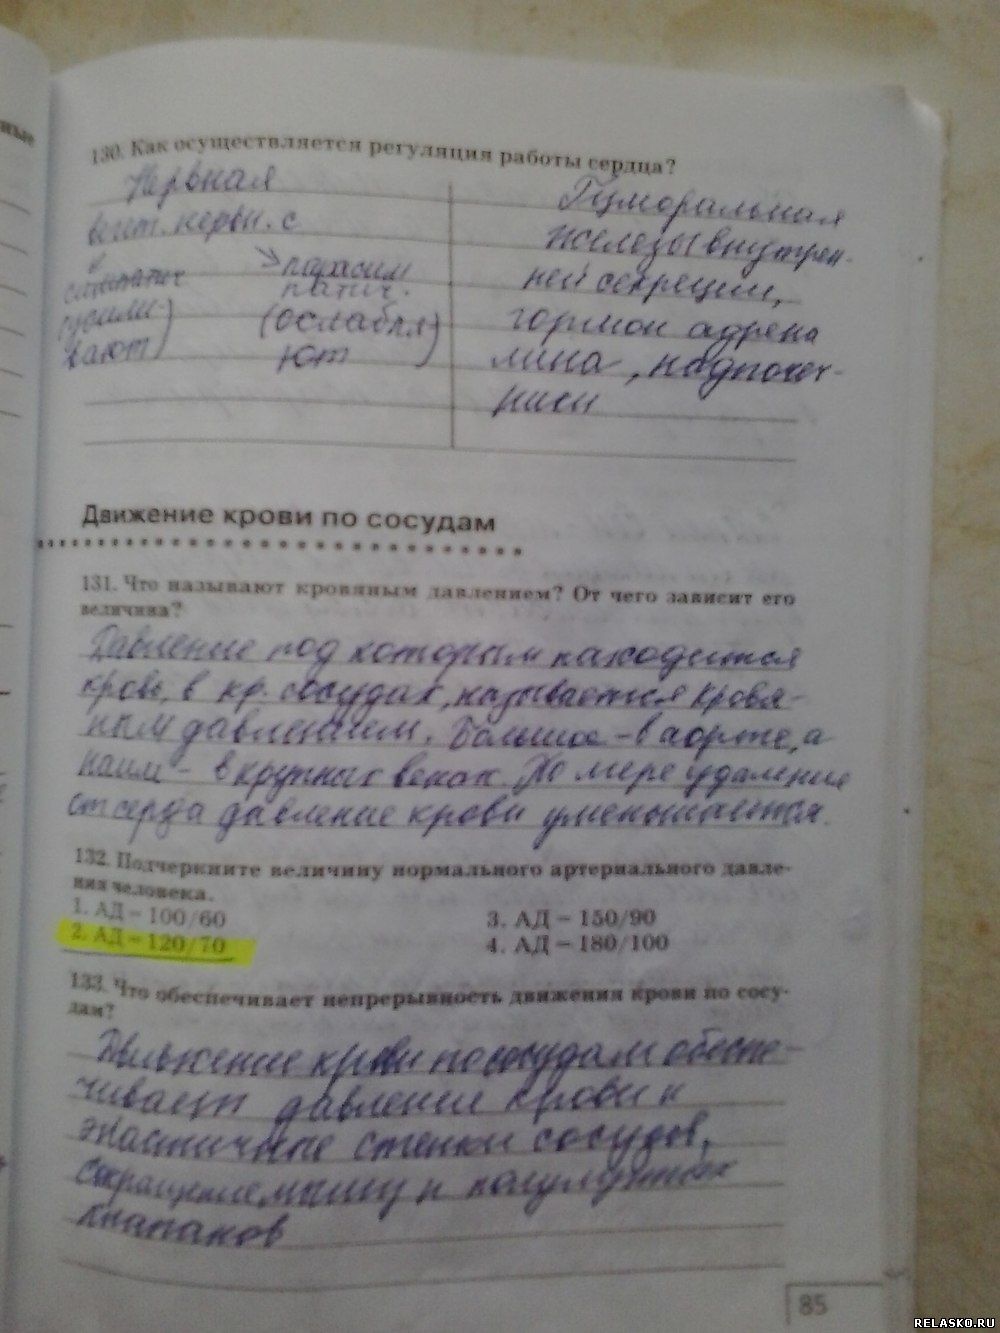 ные
130. Как осуществляется регуляция работы сердца?
Нервная
вегет. нервн. с
симпатич
(усили-)
вают
парасим
патич.
(ослабля)
ют
Гуморальная
железы внутрен-
ней секреции,
гормон адрена
лина, надпочеч-
ники
Движение крови по сосудам
131. Что называют кровяным давлением? От чего зависит его
величина?
Давление под которым находится
кровь, в кр. сосудах, называется кровя-
ным давлением. Большое - в аорте, а
наим - в крупных венах. По мере удаления
от серда давление крови уменьшается.
132. Подчеркните величину нормального артериального давле-
ния человека.
1. АД – 100/60
2. АД – 120/70
3. АД – 150/90
4. АД – 180/100
133. Что обеспечивает непрерывность движения крови по сосу-
дам?
Движение крови по сосудам обеспе-
чивает давление крови и
эластичные стенки сосудов,
сокращение мышц и полулунных
клапанов
85
RELASKO.RU